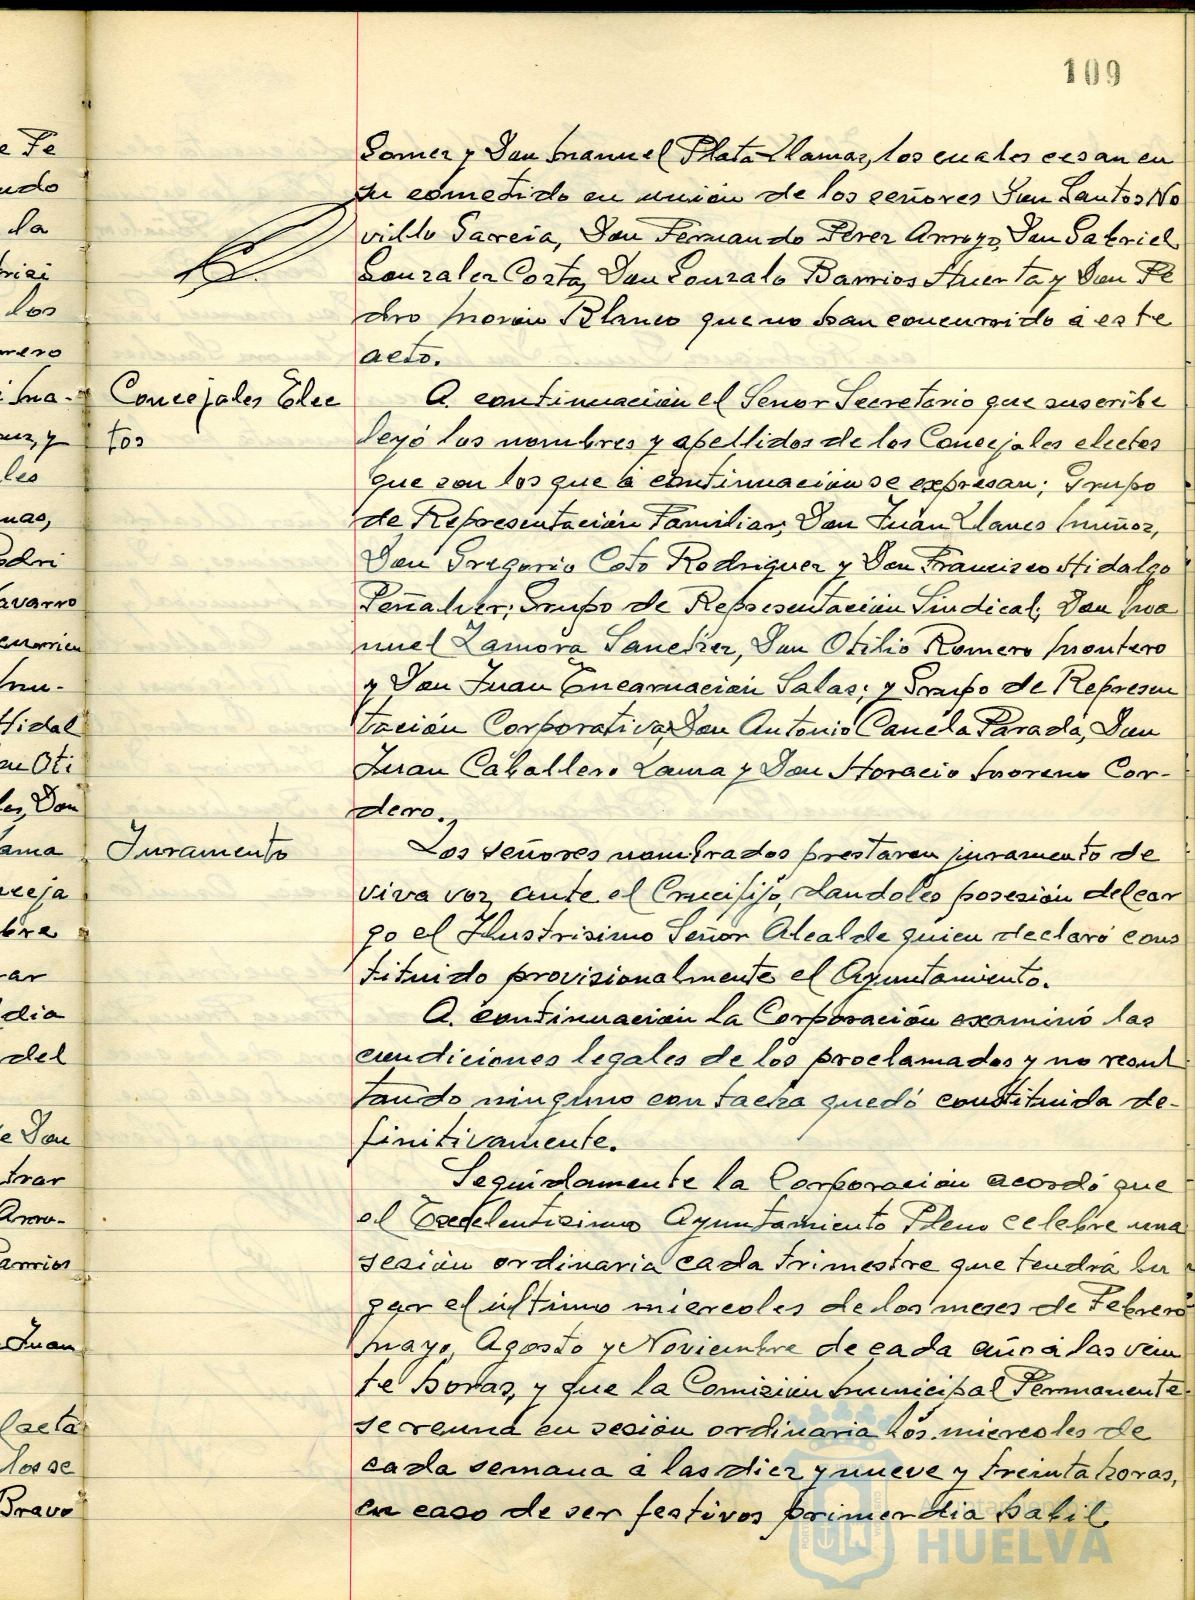 109
Gomez y Don Manuel Plata Llamas, los cuales cesan en
su cometido en unión de los señores Don Santos No
villo Garcia, Don Fernando Perez Arroyo, Don Gabriel
Gonzalez Costa, Don Gonzalo Barrios Huerta y Don Pe
dro Morón Blanco que no han concurrido á este
acto.
Concejales Elec
tos
A continuación el Señor Secretario que suscribe
leyó los nombres y apellidos de los Concejales electos
que son los que á continuación se expresan; Grupo
de Representación Familiar, Don Juan Llanes Muñoz,
Don Gregorio Coto Rodriguez y Don Francisco Hidalgo
Peñalver; Grupo de Representación Sindical; Don Ma
nuel Zamora Sanchez, Don Otilio Romero Montero
y Don Juan Encarnación Salas; y Grupo de Represen
tación Corporativa, Don Antonio Canela Parada, Don
Juan Caballero Lama y Don Horacio Moreno Cor-
dero.
Juramento
Los señores nombrados prestaron juramento de
viva voz ante el Crucifijo, dandoles posesión del car
go el Ilustrisimo Señor Alcalde quien declaró cons
tituido provisionalmente el Ayuntamiento.
A continuación la Corporación examinó las
condiciones legales de los proclamados y no resul
tando ninguno con tacha quedó constituida de-
finitivamente.
Seguidamente la Corporación acordó que
el Excelentisimo Ayuntamiento Pleno celebre una
sesión ordinaria cada trimestre que tendrá lu
gar el último miercoles de los meses de Febrero
Mayo, Agosto y Noviembre de cada año á las vein
te horas, y que la Comisión Municipal Permanente
se reuna en sesión ordinaria los miercoles de
cada semana á las diez y nueve y treinta horas,
en caso de ser festivos primer dia habil
Ayuntamiento de
HUELVA
e Fe
la
los
Ma-
uz, y
les
nas,
odri
avarro
Mu-
Hidal
n Oti
les, Don
ama
nceja
bre
rar
dia
del
e Don
trar
Arro-
arrios
Juan
los se
Bravo